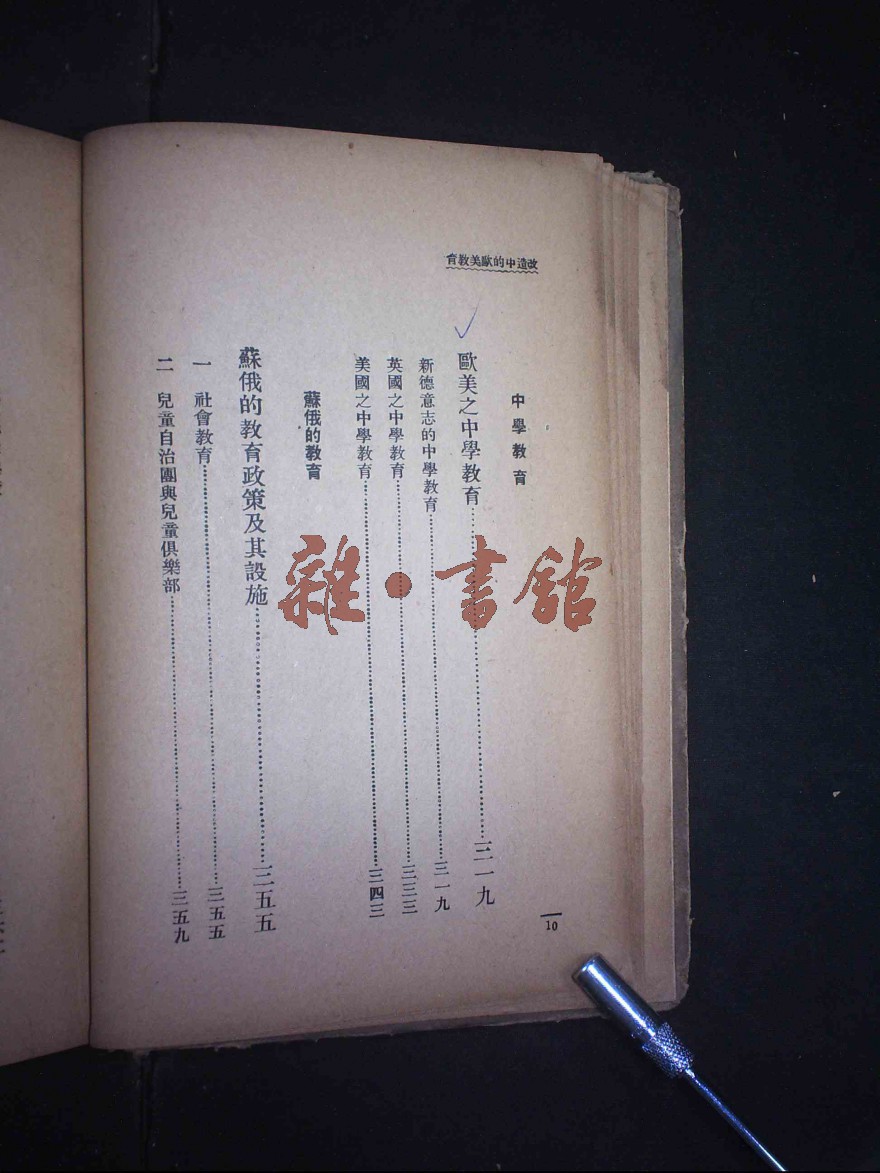 改造中的歐美教育
中學教育
歐美之中學教育……三一九
新德意志的中學教育……三一九
英國之中學教育……三三三
美國之中學教育……三四三
蘇俄的教育
蘇俄的教育政策及其設施……三五五
一 社會教育……三五五
二 兒童自治團與兒童俱樂部……三五九
10
雜·書館